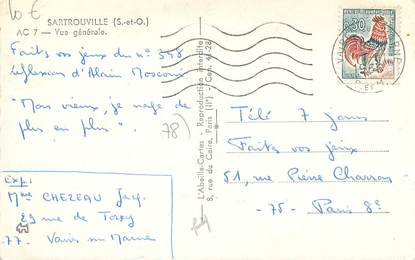 10 €
SARTROUVILLE (S.-et-O.)
AC 7 — Vue générale.
Faites vos jeux du n° 398
réflexion d'Alain Mosconi
"Mon vieux, je nage de
plus en plus".
78)
Exp:
Mme CHEZEAU Jacq.
23 rue de Torcy
77. Vaires sur Marne
L'Abeille-Cartes - Reproduction interdite
8, rue du Caire, Paris (II°) - Cen. 41-28
0,30
Télé 7 jours
Faites vos jeux
51, rue Pierre Charron
- 75 - Paris 8e